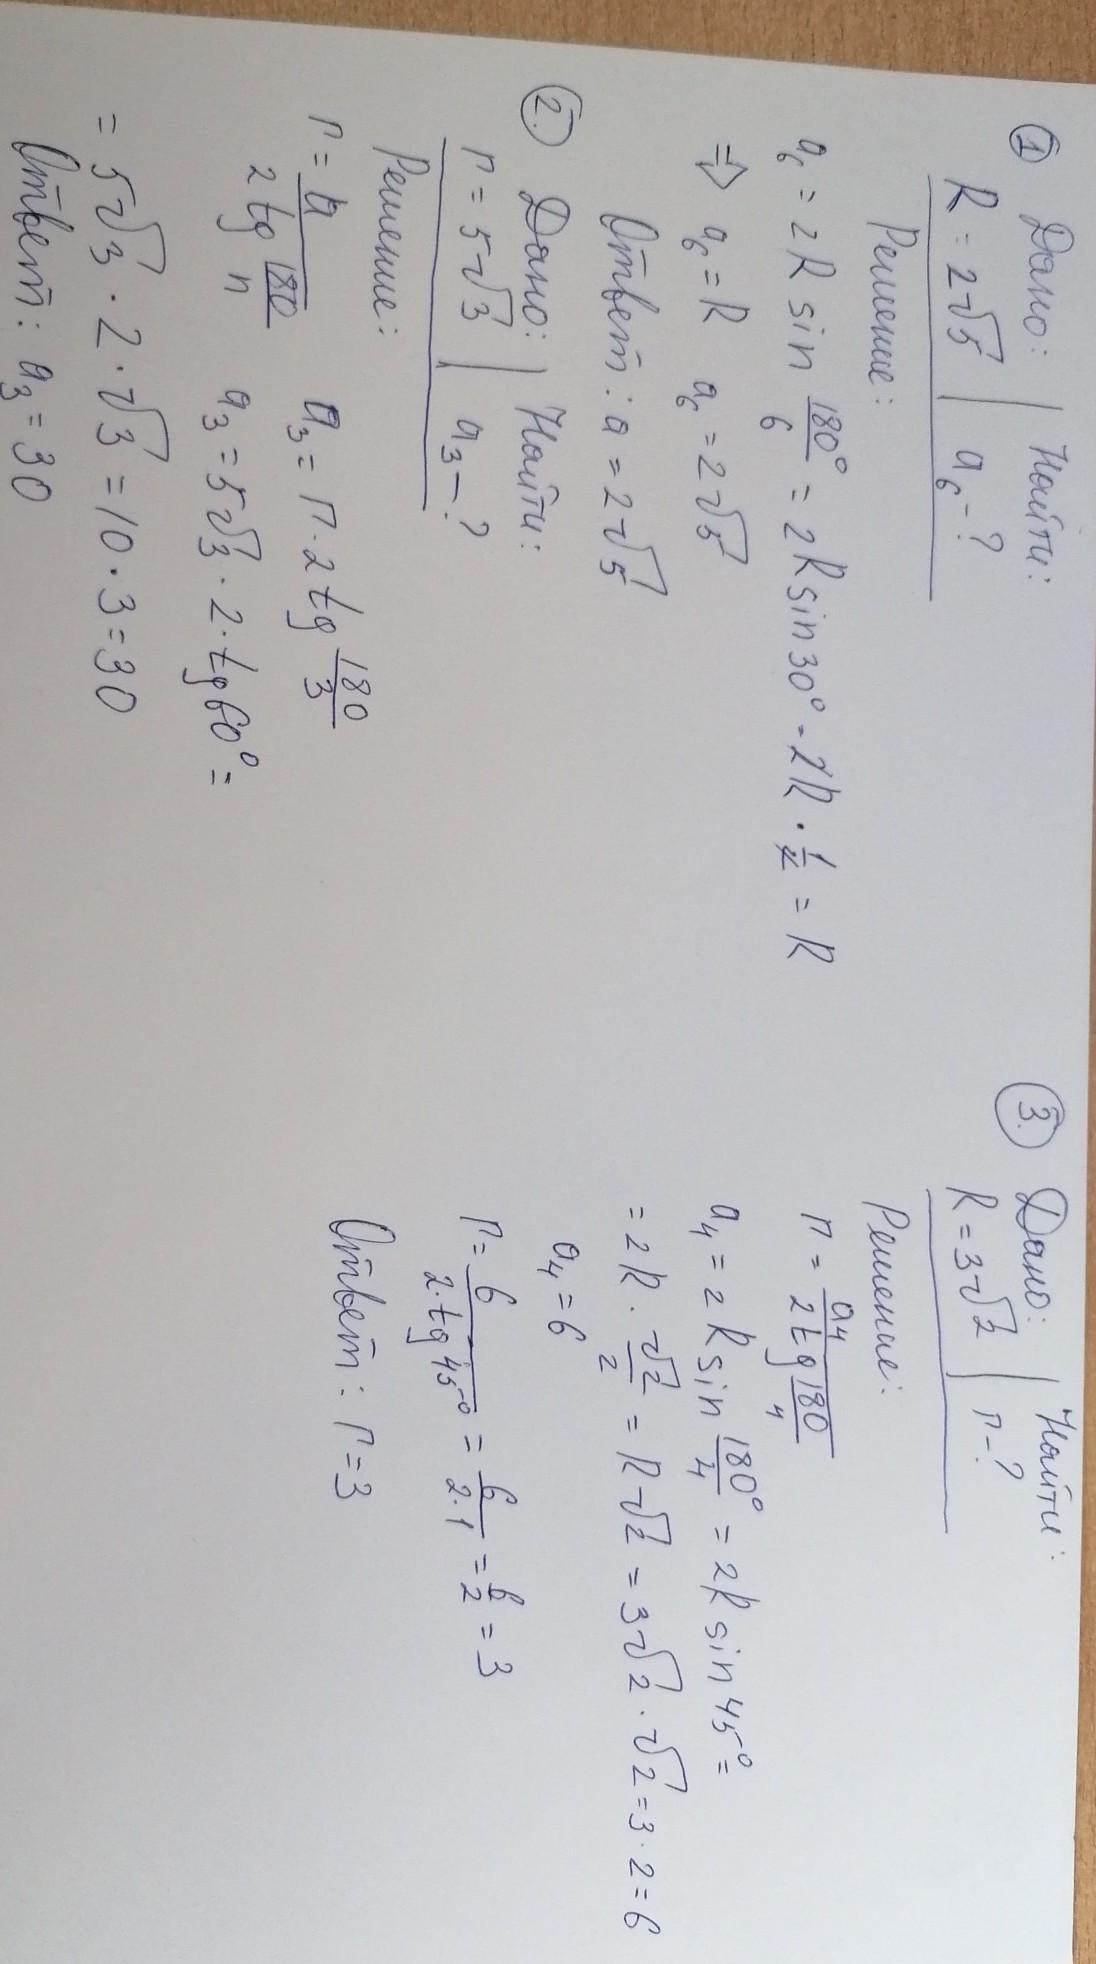 ① Дано: | Найти:
R = 2√5 | a₆ - ?
Решение:
a₆ = 2R sin 180°/6 = 2R sin 30° = 2R · 1/2 = R
⇒ a₆ = R a₆ = 2√5
Ответ: a = 2√5
②. Дано: | Найти:
r = 5√3 | a₃ - ?
Решение:
r = a/(2 tg 180/n) a₃ = r · 2 tg 180/3
a₃ = 5√3 · 2 · tg 60° =
= 5√3 · 2 · √3 = 10 · 3 = 30
Ответ: a₃ = 30
③. Дано: | Найти:
R = 3√2 | r - ?
Решение:
r = a₄/(2 tg 180/4)
a₄ = 2R sin 180°/4 = 2R sin 45° =
= 2R · √2/2 = R√2 = 3√2 · √2 = 3 · 2 = 6
a₄ = 6
r = 6/(2 · tg 45°) = 6/(2 · 1) = 6/2 = 3
Ответ: r = 3